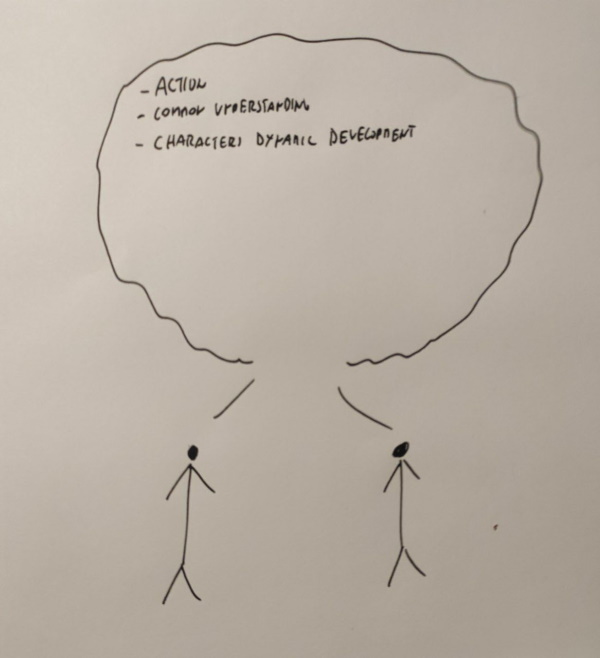 - ACTION
- COMMON UNDERSTANDING
- CHARACTERS DYNAMIC DEVELOPMENT